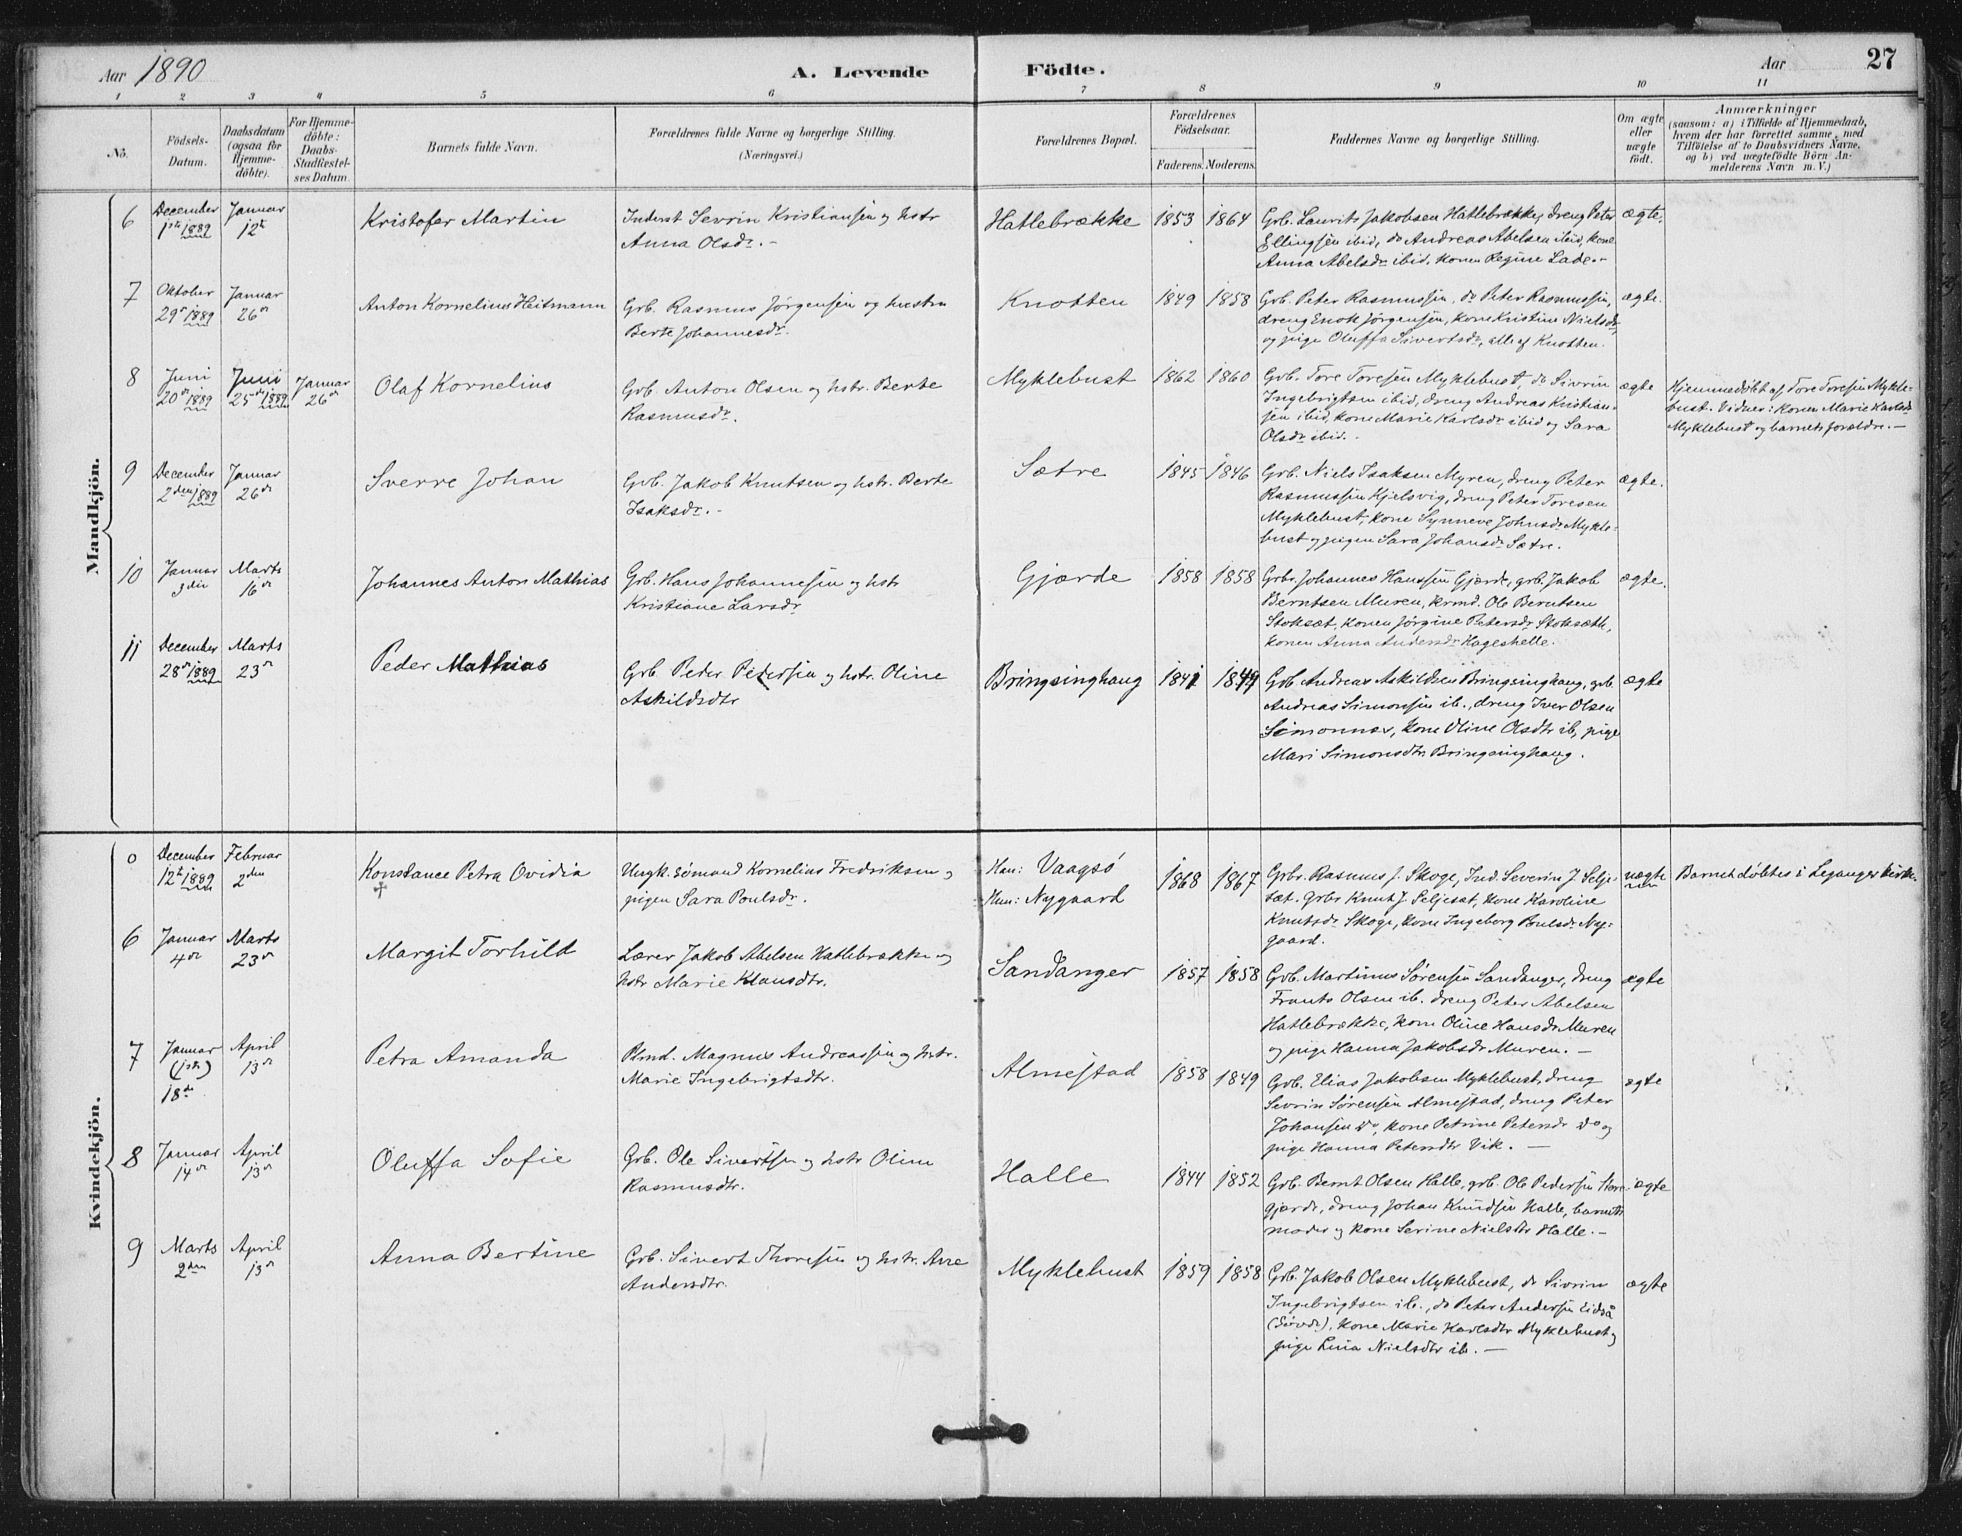 Aar 1890
A. Levende Födte.
Aar
27
1 2 3 4 5 6 7 8 9 10 11
No.
Födsels-
Datum.
Daabsdatum
(ogsaa for
Hjemme-
döbte).
For Hjemme-
döbte:
Daabs-
Stadfæstel-
ses Datum.
Barnets fulde Navn.
Forældrenes fulde Navne og borgerlige Stilling.
(Næringsvei.)
Forældrenes Bopæl.
Forældrenes
Födselsaar.
Faderens. Moderens.
Faddernes Navne og borgerlige Stilling.
Om ægte
eller
uægte
födt.
Anmærkninger
(saasom: a) i Tilfælde af Hjemmedaab,
hvem der har forrettet samme, med
Tilföielse af to Daabsvidners Navne,
og b) ved uægtefödte Börn An-
melderens Navn m. V.)
Mandkjön.
6
December
1ste 1889
Januar
12te
Kristofer Martin
Inderst Sevrin Kristiansen og hstr
Anna Olsdr. -
Hatlebrække
1853 1864
Grb. Laurits Jakobsen Hatlebrække, dreng Peter
Ellingsen ibid, do Andreas Abelsen ibid, kone
Anna Abelsdr ibid, konen Regine Lade. -
ægte.
7
Oktober
29de 1889
Januar
26de
Anton Kornelius Heitmann
Grb. Rasmus Jørgensen og hustru
Berte Johannesdr.
Knotten
1849 1858
Grb. Peter Rasmussen, do Peter Rasmussen,
dreng Enok Jørgensen, kone Kristine Nielsdr,
og pige Oluffa Sivertsdr, alle af Knotten.
ægte.
8
Juni
20de 1889
Juni
25de 1889
Januar
26de
Olaf Kornelius
Grb. Anton Olsen og hstr. Berte
Rasmusdr.
Myklebust
1862 1860
Grb. Tore Toresen Myklebust, do Sivrin
Ingebrigtsen ibid, dreng Andreas Kristian-
sen ibid, kone Marie Karlsdr ibid og Sara
Olsdr ibid. -
ægte
Hjemmedøbt af Tore Toresen Mykle-
bust. Vidner: konen Marie Karlsdr
Myklebust og barnets forældre. -
9
December
2den 1889
Januar
26de
Sverre Johan
Grb. Jakob Knutsen og hstr. Berte
Isaksdr. -
Sætre
1845 1846
Grb. Niels Isaksen Myren, dreng Peter
Rasmussen Hjelsvig, dreng Peter Toresen
Myklebust, kone Synneve Johnsdr Mykle-
bust og pigen Sara Johansdr Sætre.
ægte.
10
Januar
3die
Marts
16de
Johannes Anton Mathias
Grb. Hans Johannesen og hstr
Kristiane Larsdr
Gjærde
1858 1858
Grbr. Johannes Hanssen Gjærde, grb. Jakob
Berntsen Muren, krmd. Ole Berntsen
Stoksæt, konen Jørgine Petersdr Stoksæth,
konen Anna Andersdr Hageskelle.
ægte.
11
December
28de 1889
Marts
23de
Peder Mathias
Grb. Peder Pedersen og hstr. Oline
Askildsdtr
Bringsinghaug
1841 1849
Grb Andreas Askildsen Bringsinghaug, grb.
Andreas Simonsen ib., dreng Iver Olsen
Simonnæs, kone Oline Olsdtr ib, pige
Mari Simonsdtr Bringsinghaug.
ægte
Kvindekjön.
0
December
12te 1889
Februar
2den
Konstance Petra Ovidia
Ungk. sømand Kornelius Fredriksen og
pigen Sara Poulsdr.
Han: Vaagsö
Hun: Nygaard
1868 1867
Grbr. Rasmus J. Skoge, Ind. Severin J. Selje-
sæt. Grbr Knut J. Seljesæt, kone Karoline
Knutsdr Skoge, kone Ingeborg Poulsdr Ny-
gaard.
uægte
Barnet döbtes i Leganger kirke.
6
Januar
4de
Marts
23de
Margit Torhild
Lærer Jakob Abelsen Hatlebrække og
hstr Marie Klausdtr.
Sandanger
1857 1858
Grb. Martinus Sørensen Sandanger, dreng
Frants Olsen ib. dreng Peter Abelsen
Hatlebrække, kone Oline Hansdr Muren
og pige Hanna Jakobsdr Muren. -
ægte
7
Januar
(1ste)
18de
April
13de
Petra Amanda
Plmd. Magnus Andreassen og hstr.
Marie Ingebrigtsdtr.
Almestad
1858 1849
Grb. Elias Jakobsen Myklebust, dreng
Sevrin Sørensen Almestad, dreng Peter
Johansen do, kone Petrine Petersdr do og
pige Hanna Petersdtr Vik. -
ægte
8
Januar
14de
April
13de
Oluffa Sofie
Grb. Ole Sivertsen og hstr Oline
Rasmusdtr.
Halle
1844 1852
Grb. Bernt Olsen Halle, grb. Ole Pedersen Store-
gjærde, dreng Johan Knudsen Halle, barnets
moder og kone Serine Nielsdtr Halle. -
ægte
9
Marts
2den
April
13de
Anna Bertine
Grb. Sivert Thoresen og hstr. Ane
Andersdtr.
Myklebust
1859 1858
Grb. Jakob Olsen Myklebust, do Sivrin
Ingebrigtsen ib., do Peter Andersen Eidså
(Sövde), kone Marie Karlsdtr Myklebust og
pige Lina Nielsdtr ib. -
ægte